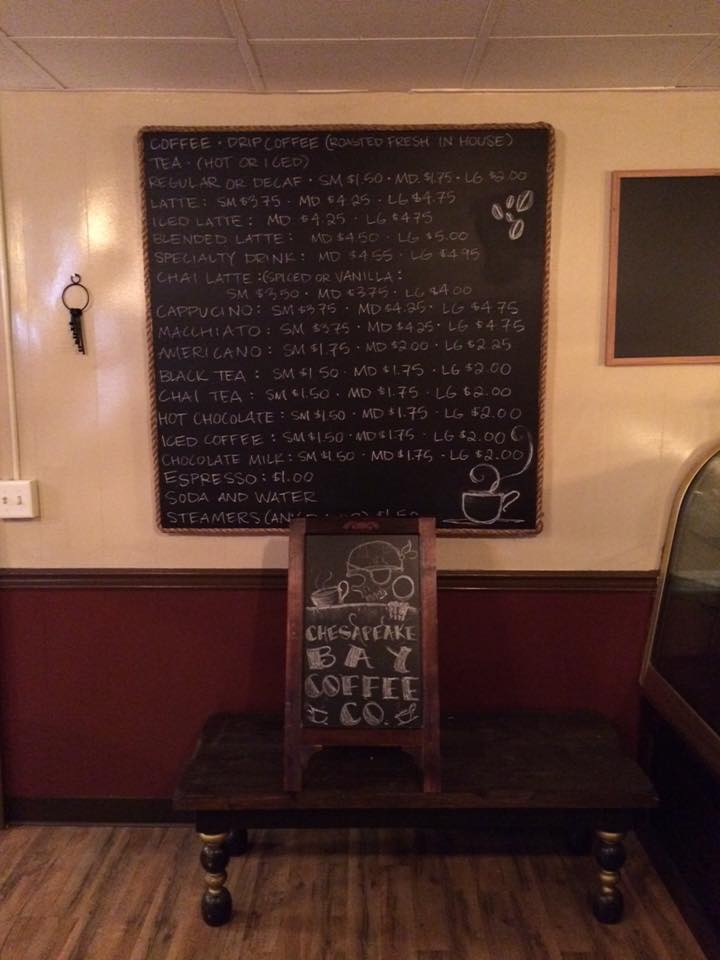 COFFEE · DRIP COFFEE (ROASTED FRESH IN HOUSE)
TEA · (HOT OR ICED)
REGULAR OR DECAF · SM $1.50 · MD. $1.75 · LG $2.00
LATTE: SM $3.75 · MD 4.25 · LG $4.75
ICED LATTE: MD 4.25 · LG $4.75
BLENDED LATTE: MD $4.50 · LG $5.00
SPECIALTY DRINK: MD $4.55 · LG $4.95
CHAI LATTE: (SPICED OR VANILLA:
SM $3.50 · MD $3.75 · LG $4.00
CAPPUCINO: SM $3.75 · MD $4.25 · LG $4.75
MACCHIATO: SM $3.75 · MD $4.25 · LG $4.75
AMERICANO: SM $1.75 · MD $2.00 · LG $2.25
BLACK TEA: SM $1.50 · MD $1.75 · LG $2.00
CHAI TEA: SM $1.50 · MD $1.75 · LG $2.00
HOT CHOCOLATE: SM $1.50 · MD $1.75 · LG $2.00
ICED COFFEE: SM $1.50 · MD $1.75 · LG $2.00
CHOCOLATE MILK: SM $1.50 · MD $1.75 · LG $2.00
ESPRESSO: $1.00
SODA AND WATER
STEAMERS $1.50
CHESAPEAKE
BAY
COFFEE
CO.